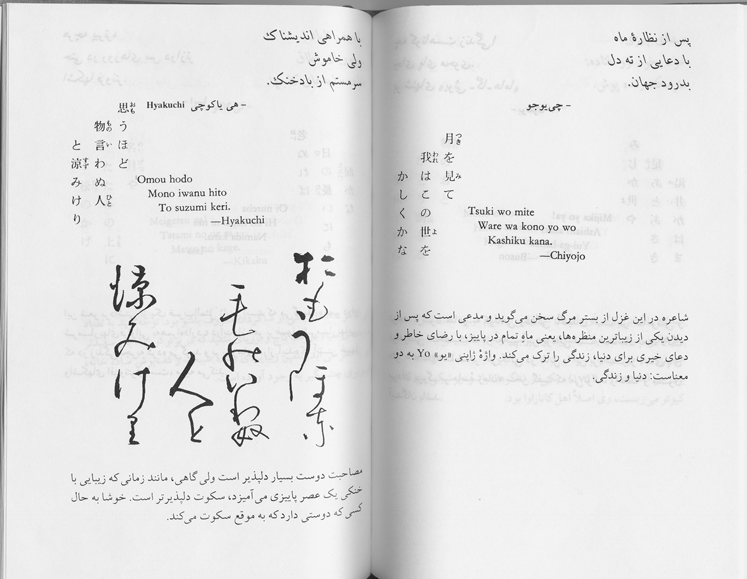 پس از نظارهٔ ماه
با دعایی از ته دل
بدرود جهان.
- چی‌یوجو
月を見て
我はこの世を
かしくかな
Tsuki wo mite
Ware wa kono yo wo
Kashiku kana.
—Chiyojo
شاعره در این غزل از بستر مرگ سخن می‌گوید و مدعی است که پس از
دیدن یکی از زیباترین منظره‌ها، یعنی ماهِ تمام در پاییز، با رضای خاطر و
دعای خیری برای دنیا، زندگی را ترک می‌کند. واژهٔ ژاپنی «یو» Yo به دو
معناست: دنیا و زندگی.
با همراهی اندیشناک
ولی خاموش
سرمستم از بادخنک.
- هی یاکوچی Hyakuchi
思うほど
物言わぬ人
と涼みけり
Omou hodo
Mono iwanu hito
To suzumi keri.
—Hyakuchi
おもうほど
いわぬ
人と
涼みけり
مصاحبت دوست بسیار دلپذیر است ولی گاهی، مانند زمانی که زیبایی با
خنکی یک عصر پاییزی می‌آمیزد، سکوت دلپذیرتر است. خوشا به حال
کسی که دوستی دارد که به موقع سکوت می‌کند.